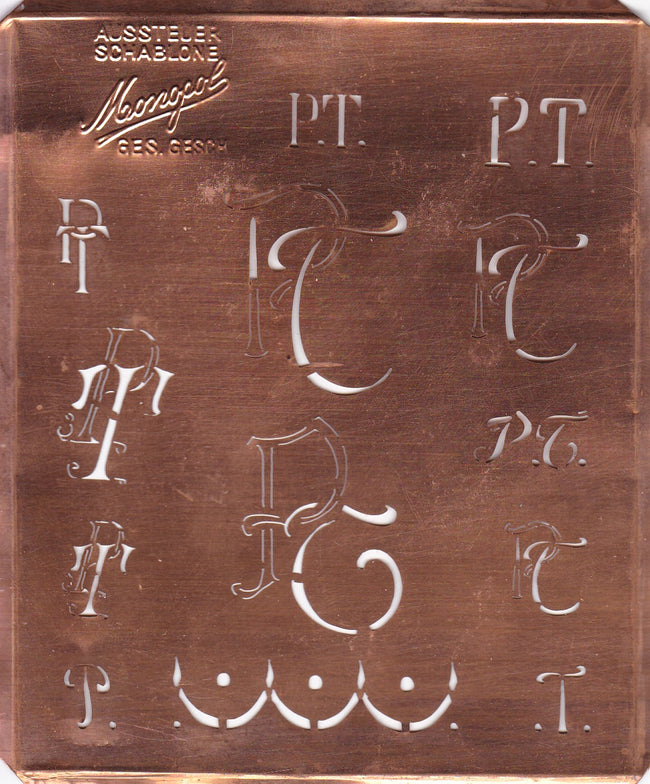 AUSSTEUER
SCHABLONE
Monopol
GES. GESCH
P.T. P.T.
PT PT PT
PT P.T.
PT
PT PT
P. .T.